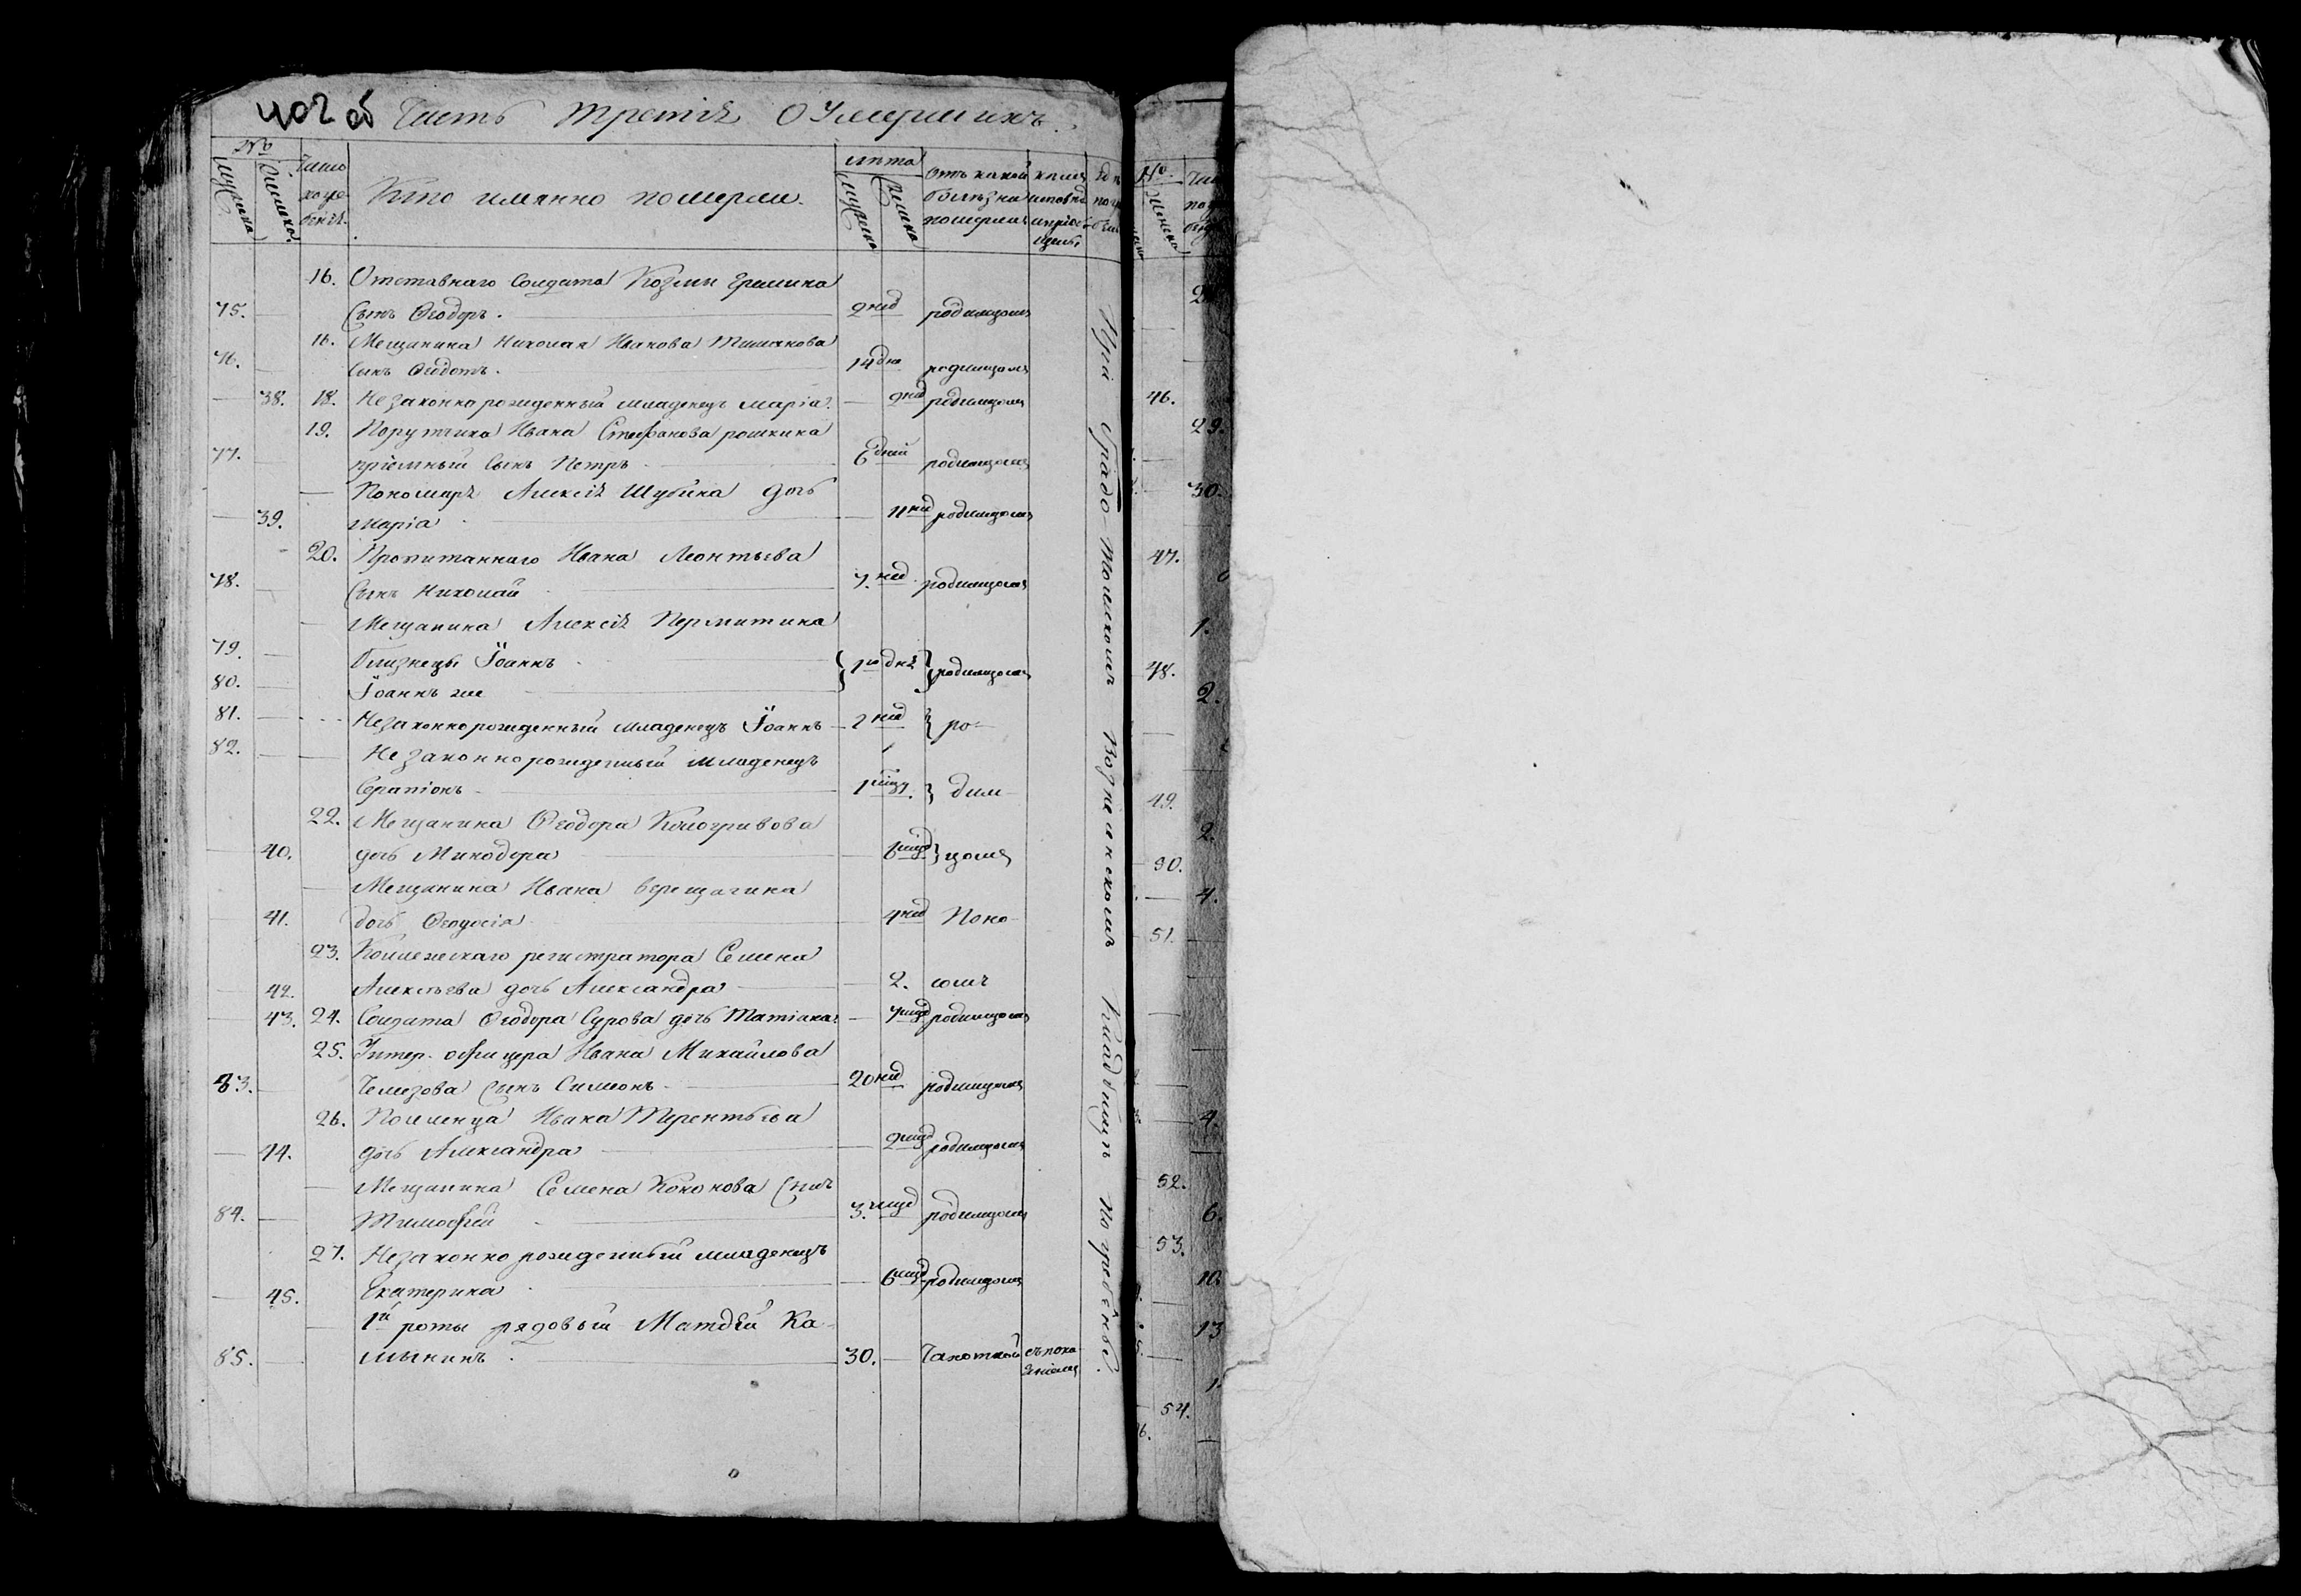 402 об Часть третія О Умершихъ.
№
Мужеска
Женска.
Число
погре
бенія.
Кто имянно померли.
лѣта
Мужеска
Женска
Отъ какой
болѣзни
померли
кѣмъ
исповѣд
и пріоб
щены
16. Отставнаго солдата Козмы Ершина
75. — сынъ Ѳеодоръ. 2 нед родимцомъ
16. Мещанина Николая Иванова
76. — сынъ Ѳеодотъ. 14 дн родимцомъ
— 38. 18. Незаконнорожденный младенецъ Марія. — 2 нед родимцомъ
19. Порутчика Ивана Стефанова рошкина
77. — пріемный сынъ Петръ 6 дней родимцомъ
— Пономаря Алексія Шубина дочь
— 39. Марія — 11 нед родимцомъ
20. Пропитаннаго Ивана Леонтьева
78. — сынъ Николай 7. нед. родимцомъ
— Мещанина Алексія Пермитина
79. — близнецы Іоаннъ
1го дня родимцомъ
80. — Іоаннъ же
81. — Незаконнорожденный младенецъ Іоаннъ — 2 нед ро-
82. — — Незаконнорожденный младенецъ
Серапіонъ 1 мцъ. дим-
22. Мещанина Ѳеодора Кологривова
— 40. дочь Минодора — 6 мцъ цомъ
— Мещанина Ивана Верещагина
— 41. дочь Ѳеодосія — 4 нед Поно-
23. Коллежскаго регистратора Семена
— 42. Алексѣева дочь Александра — 2. сомъ
— 43. 24. Солдата Ѳеодора Сурова дочь Татіана — родимцомъ
25. Унтер-офицера Ивана Михайлова
83. — Чемезова сынъ Симеонъ. 20 нед родимцомъ
26. Ивана Терентьева
— 44. дочь Александра — 2 мцд родимцомъ
— Мещанина Семена Кононова сынъ
84. — Тимофей 3. мцд родимцомъ
27. Незаконнорожденный младенецъ
— 45. Екатерина — 6 мцд родимцомъ
— 1й роты рядовый Матѳей Ка-
85. — лынинъ. 30. — Чахоткой съ пока
яніемъ
При Градо-Томскомъ Вознесенскомъ Кладбищѣ Погребены.
№
Женска
46.
29.
30.
47.
1.
48.
2.
49.
2.
50.
4.
51.
4.
52.
6.
53.
10.
13
54.